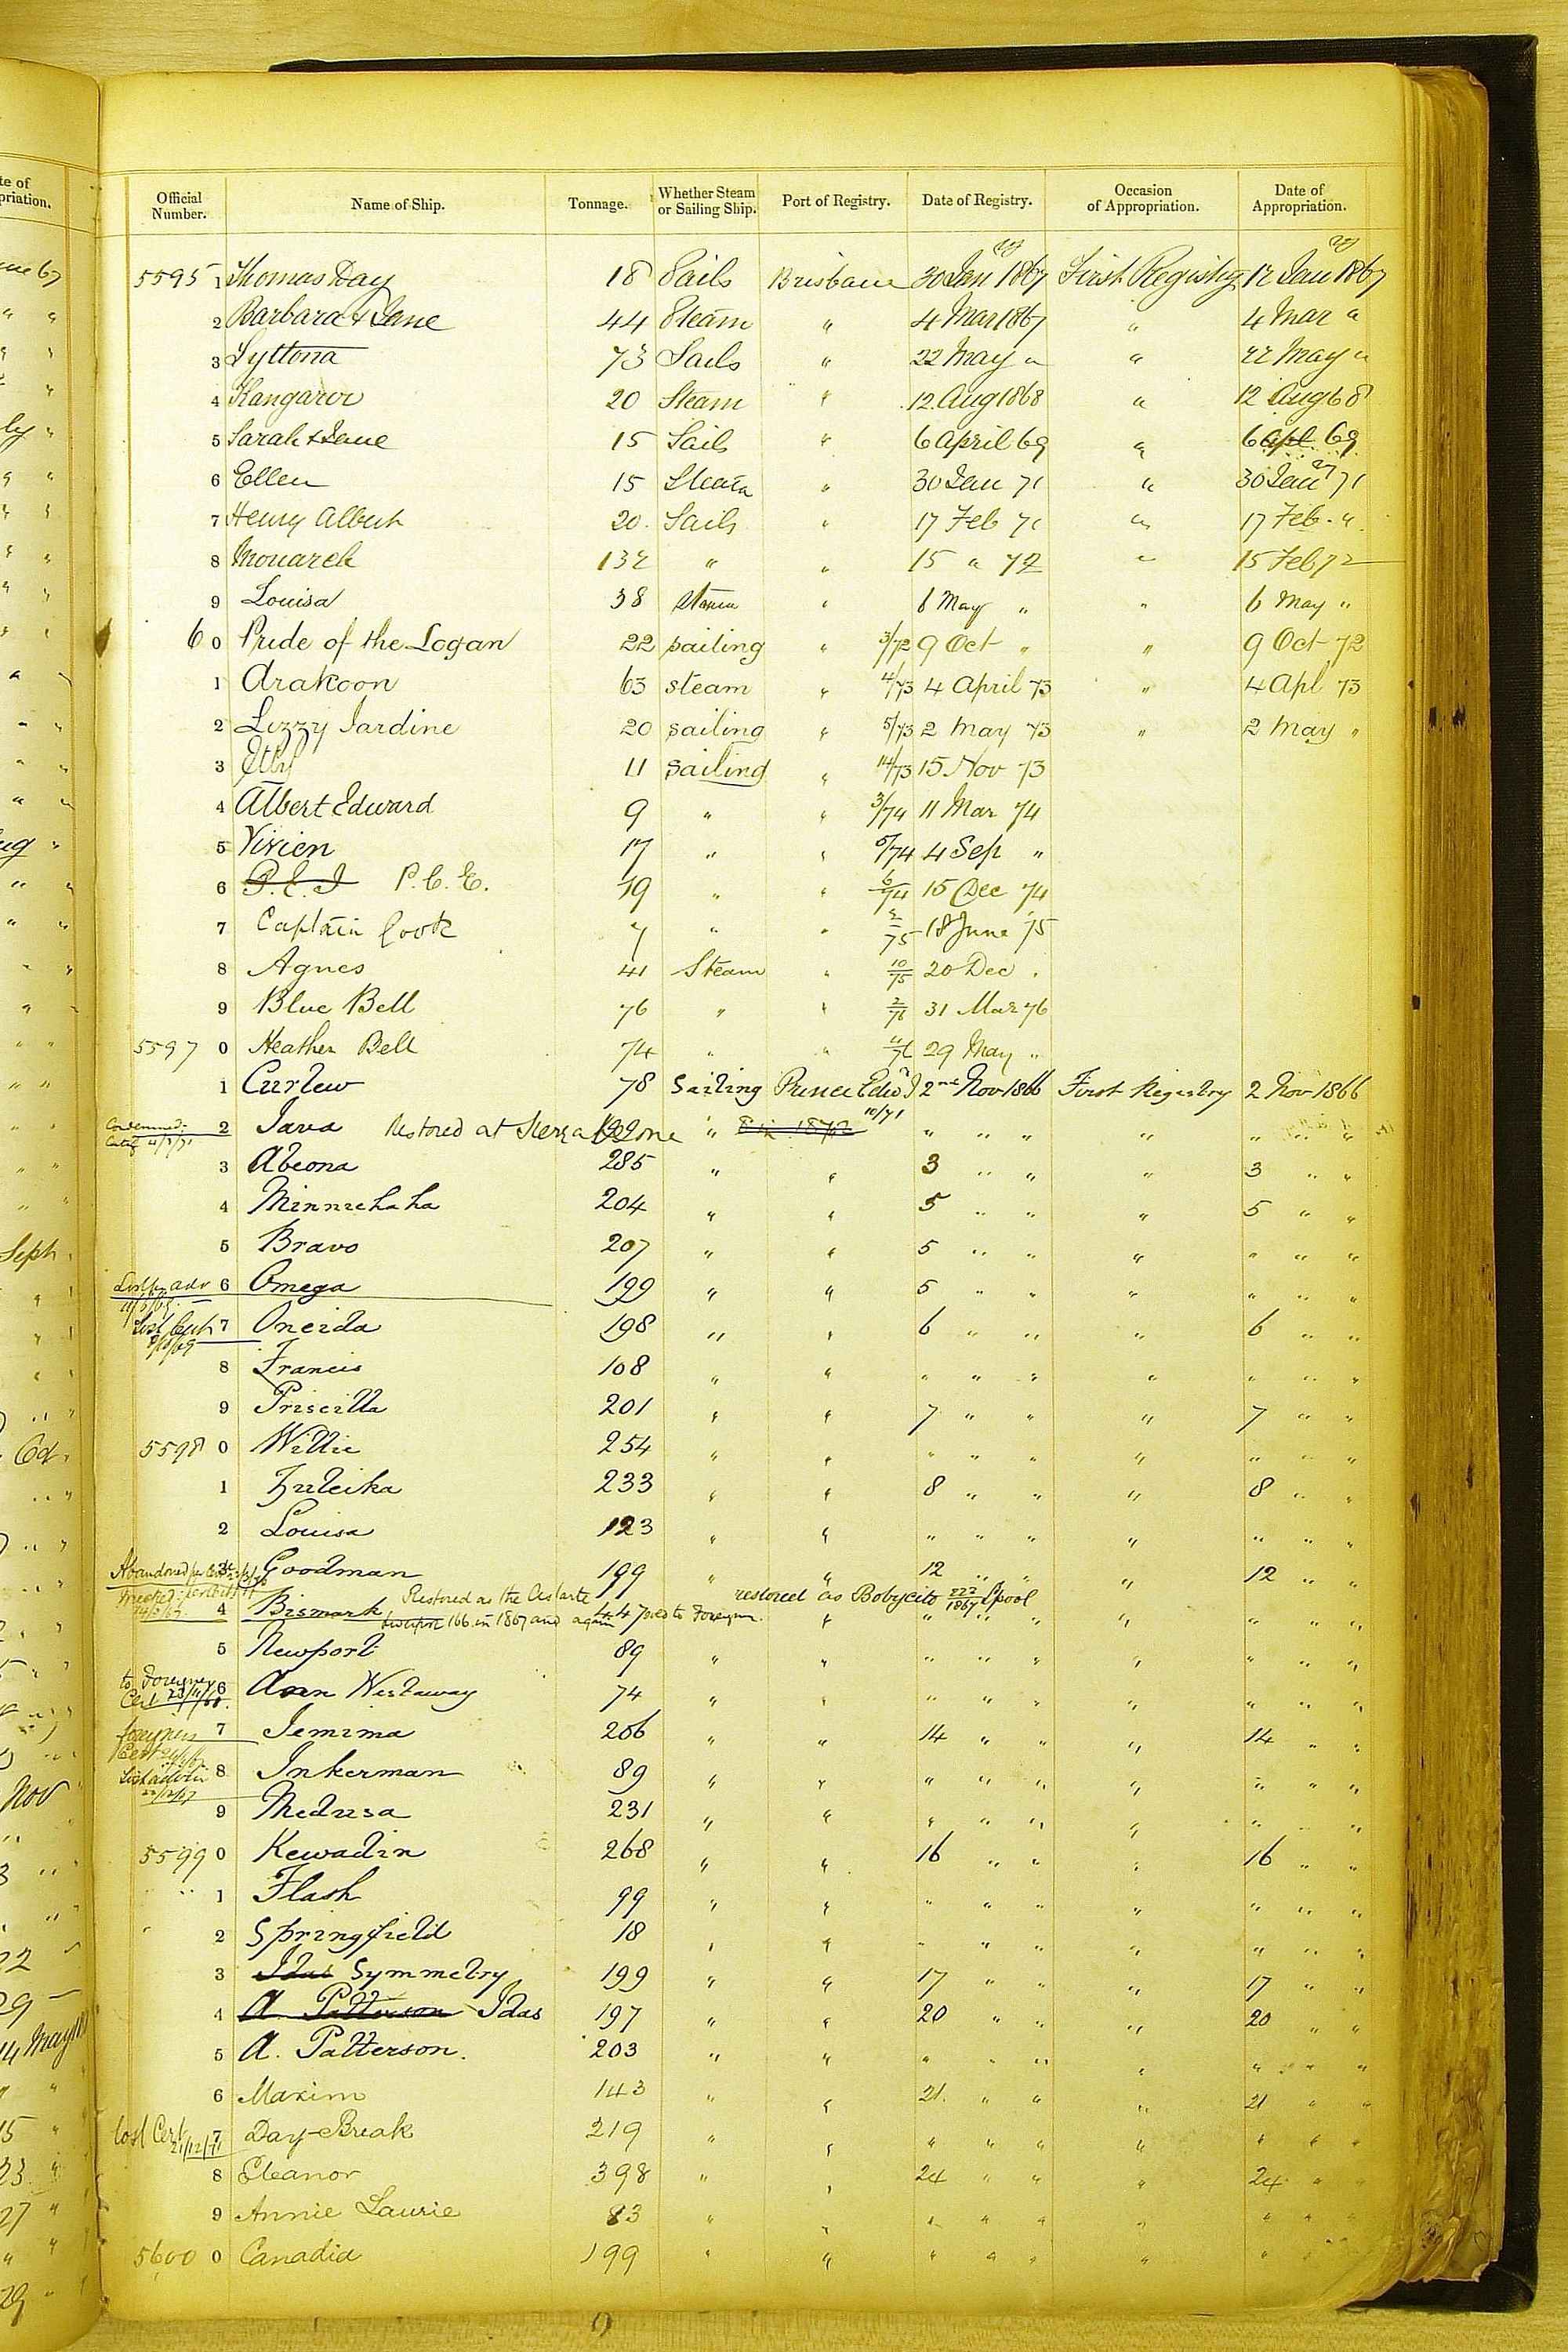 Official Number. Name of Ship. Tonnage. Whether Steam or Sailing Ship. Port of Registry. Date of Registry. Occasion of Appropriation. Date of Appropriation.
5595 1 Thomas Day 18 Sails Brisbane 30 Jan 1867 First Registry 12 Jan 1867
2 Barbara & Jane 44 Steam " 4 Mar 1867 " 4 Mar "
3 Lyttona 73 Sails " 22 May " " 22 May "
4 Kangaroo 20 Steam " 12 Aug 1868 " 12 Aug 68
5 Sarah & Jane 15 Sails " 6 April 69 " 6 Apl 69
6 Ellen 15 Steam " 30 Jan 71 " 30 Jan 71
7 Henry Albert 20 Sails " 17 Feb 71 " 17 Feb "
8 Monarch 132 " " 15 " 72 " 15 Feb 72
9 Louisa 38 Steam " 6 May " " 6 May "
6 0 Pride of the Logan 22 sailing " 3/72 9 Oct " " 9 Oct 72
1 Arakoon 63 steam " 4/73 4 April 73 " 4 Apl 73
2 Lizzy Jardine 20 sailing " 5/73 2 May 73 " 2 May "
3 11 sailing " 14/73 15 Nov 73
4 Albert Edward 9 " " 3/74 11 Mar 74
5 Vivien 17 " " 5/74 4 Sep "
6 P.E.I P.C.E. 19 " " 6/74 15 Dec 74
7 Captain Cook 7 " " 2/75 18 June 75
8 Agnes 41 Steam " 10/75 20 Dec "
9 Blue Bell 76 " " 2/76 31 Mar 76
5597 0 Heather Bell 74 " " 4/76 29 May "
1 Curlew 78 Sailing Prince Edwd I 2nd Nov 1866 First Registry 2 Nov 1866
Condemned 2 Java Restored at Sierra Leone " 10/71 " " " " " " "
3 Abeona 285 " " 3 " " " 3 " "
4 Minnichaha 204 " " 5 " " " 5 " "
5 Bravo 207 " " 5 " " " " " "
6 Omega 199 " " 5 " " " " " "
Lost Cert 7 Oneida 198 " " 6 " " " 6 " "
8 Francis 108 " " " " " " " " "
9 Priscilla 201 " " 7 " " " 7 " "
5598 0 Willie 254 " " " " " " " " "
1 Zuleika 233 " " 8 " " " 8 " "
2 Louisa 123 " " " " " " " " "
Abandoned 3 Goodman 199 " " 12 " " " 12 " "
4 Bismark Restored as the Astarte restored as Bobycito 222/1867 Lpool
Liverpool 166 in 1867 and again sold to Foreign " " " " " " " "
5 Newport 89 " " " " " " " " "
to Foreigners Cert 6 Ann Westaway 74 " " " " " " " " "
foreigners 7 Jemima 206 " " 14 " " " 14 " "
8 Inkerman 89 " " " " " " " " "
9 Medusa 231 " " " " " " " " "
5599 0 Kewadin 268 " " 16 " " " 16 " "
" 1 Flash 99 " " " " " " " " "
" 2 Springfield 18 " " " " " " " " "
3 Idas Symmetry 199 " " 17 " " " 17 " "
4 A. Patterson Idas 197 " " 20 " " " 20 " "
5 A. Patterson. 203 " " " " " " " " "
6 Maxim 143 " " 21 " " " 21 " "
lost Cert 21/12/71 7 Day-Break 219 " " " " " " " " "
8 Eleanor 398 " " 24 " " " 24 " "
9 Annie Laurie 83 " " " " " " " " "
5600 0 Canadia 199 " " " " " " " " "